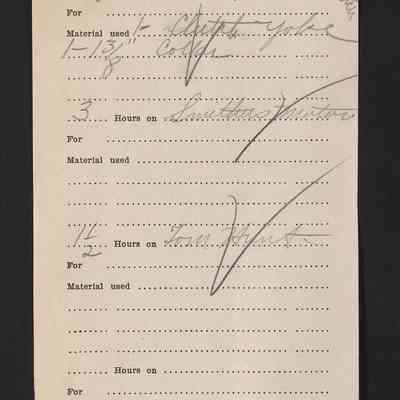 For
Material used 1- Clutch Yoke
1- 1 3/8" Collar
3 Hours on Smithers Motor
For
Material used
1 1/2 Hours on Tom Hunt
For
Material used
Hours on
For